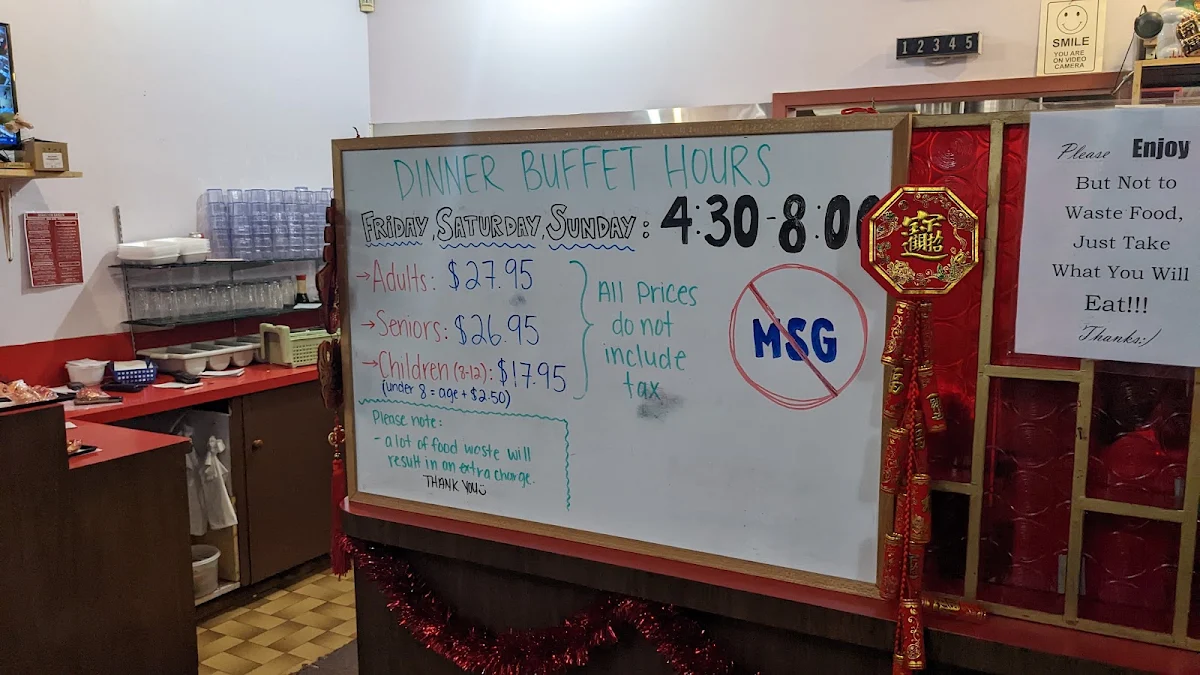 DINNER BUFFET HOURS
FRIDAY, SATURDAY, SUNDAY: 4:30-8:00
→Adults: $27.95
→Seniors: $26.95
→Children (8-12): $17.95
(under 8 = age + $2.50)
All Prices
do not
include
tax
MSG
Please note:
- a lot of food waste will
result in an extra charge.
THANK YOU
12345
SMILE
YOU ARE
ON VIDEO
CAMERA
Please Enjoy
But Not to
Waste Food,
Just Take
What You Will
Eat!!!
Thanks:)